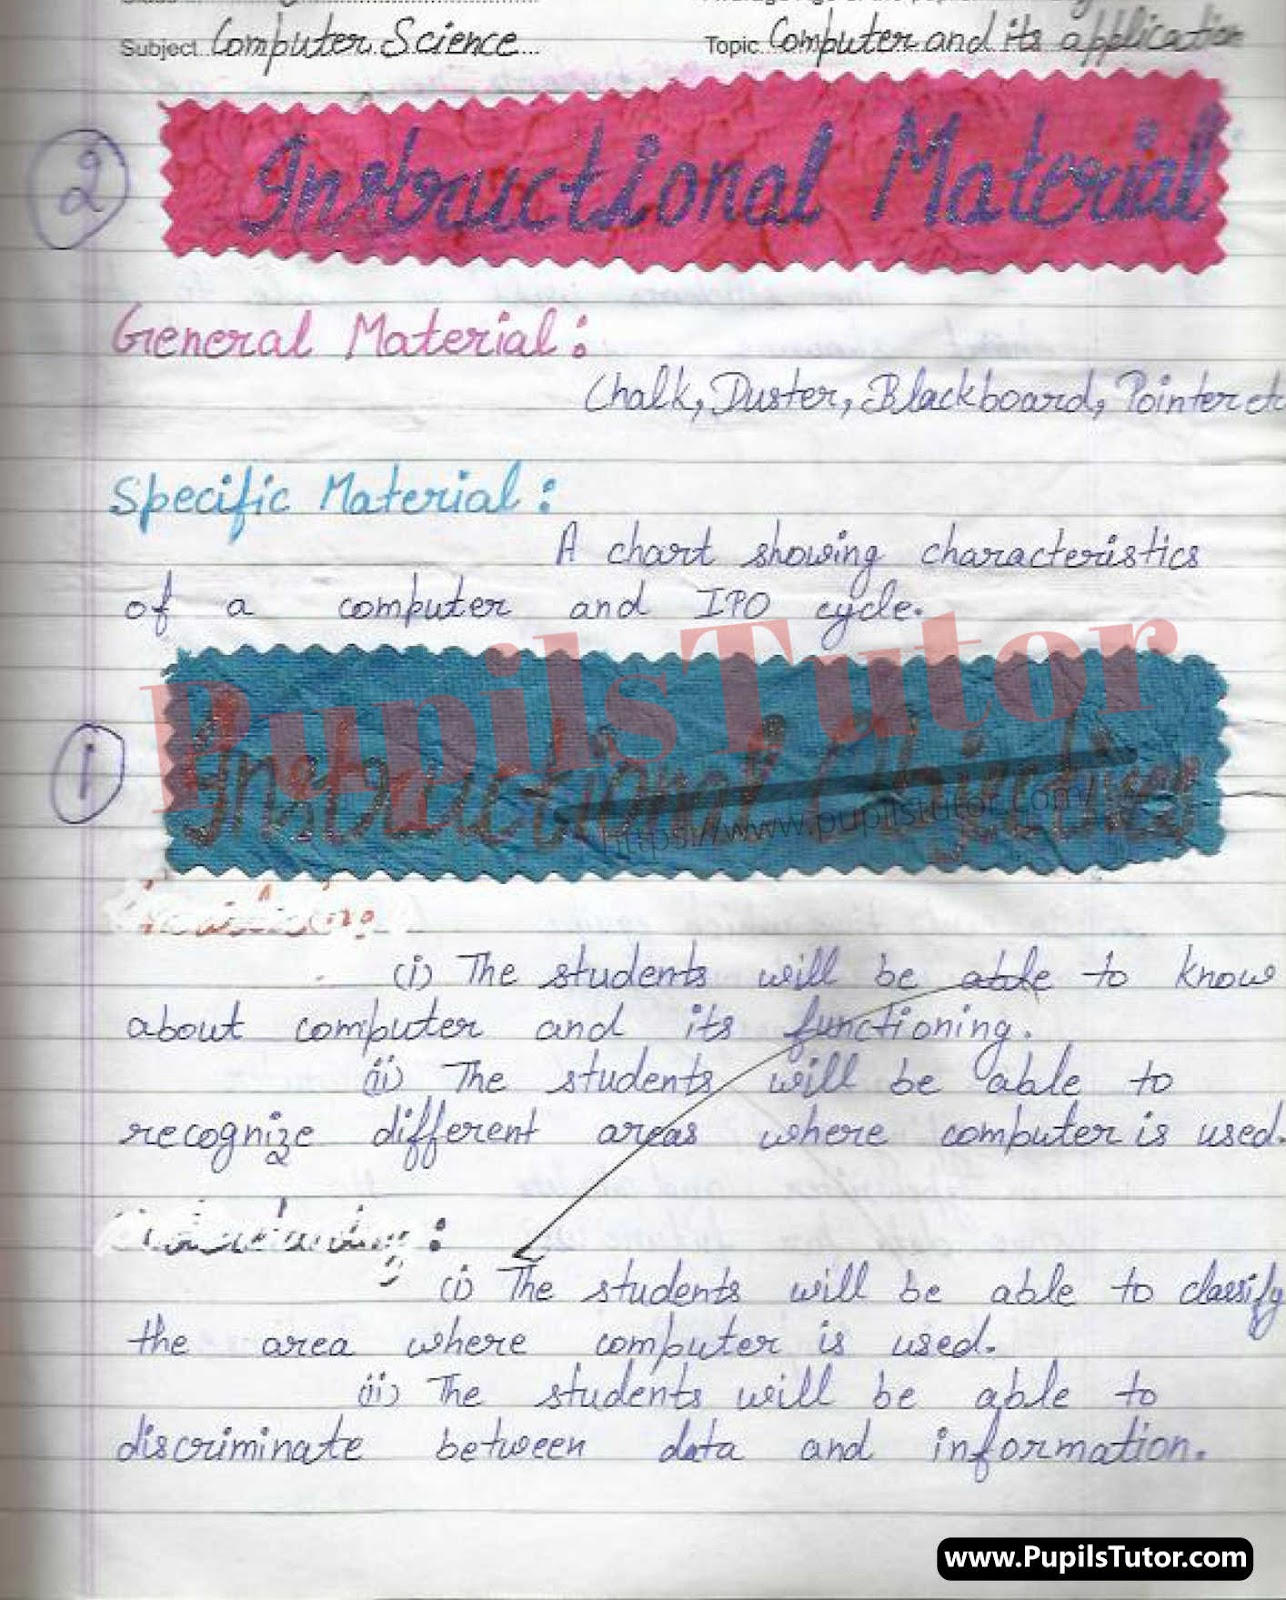 Subject Computer Science
Topic Computer and its application
2
Instructional Material
General Material :
Chalk, Duster, Blackboard, Pointer etc
Specific Material :
A chart showing characteristics
of a computer and IPO cycle.
PupilsTutor
1
Instructional Objectives
https://www.pupilstutor.com/
(i) The students will be able to know
about computer and its functioning.
(ii) The students will be able to
recognize different areas where computer is used.
(i) The students will be able to classify
the area where computer is used.
(ii) The students will be able to
discriminate between data and information.
www.PupilsTutor.com